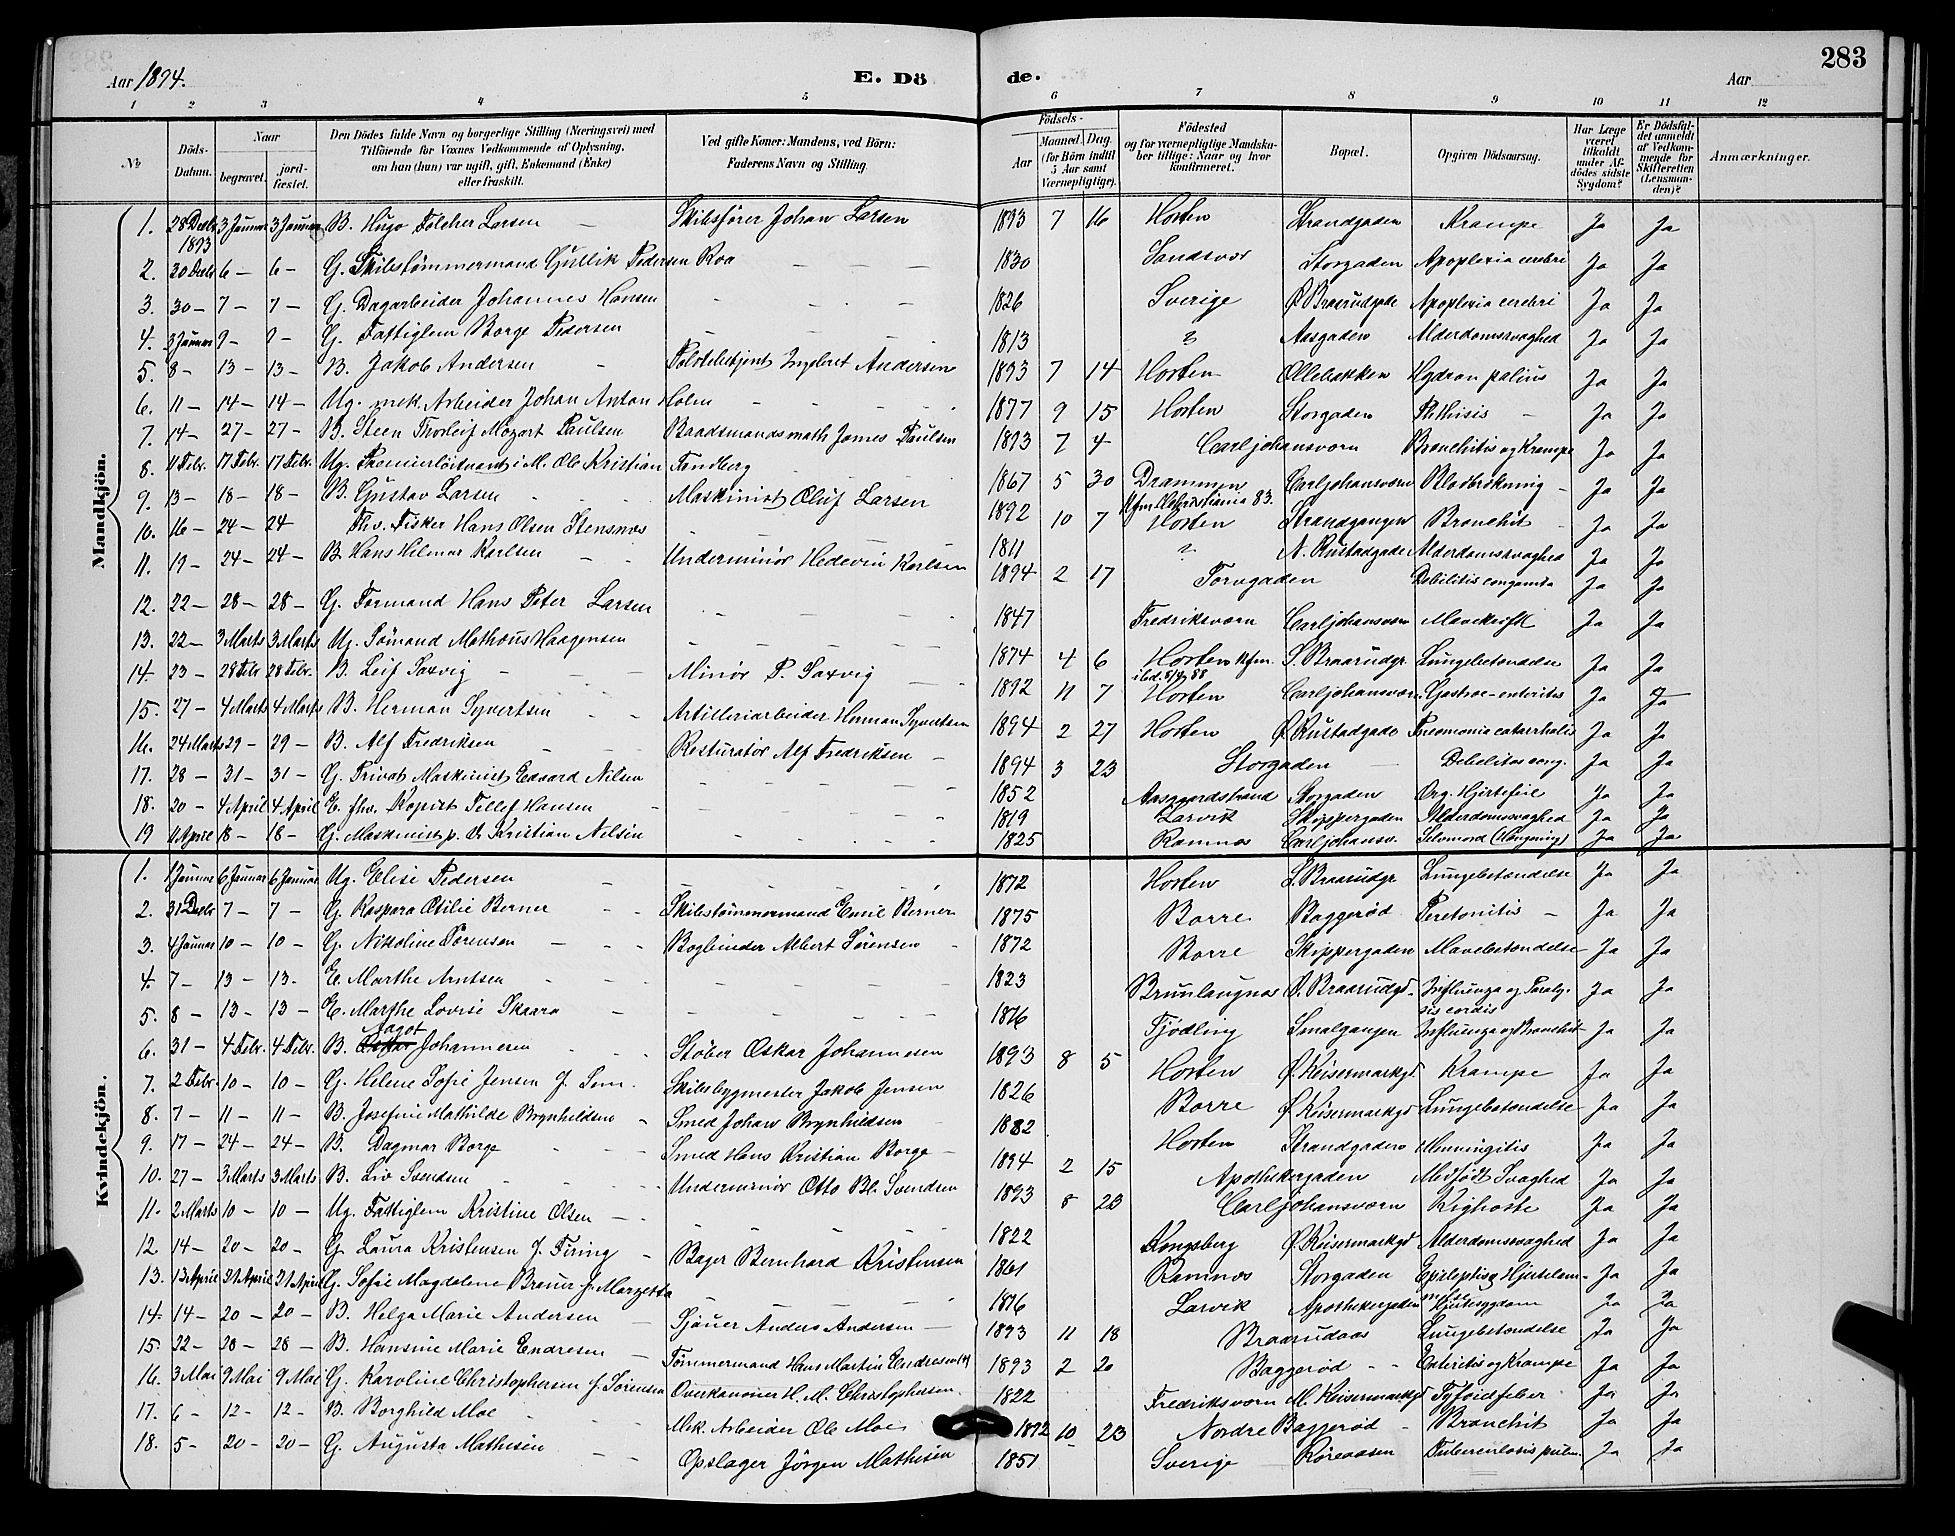 283
Aar 1894. E. Dö de. Aar
1 2 3 4 5 6 7 8 9 10 11 12
No
Döds-Datum.
Naar
begravet.
jordfæstet.
Den Dödes fulde Navn og borgerlige Stilling (Næringsvei) med
Tilföiende for Voxnes Vedkommende af Oplysning,
om han (hun) var ugift, gift, Enkemand (Enke)
eller fraskilt.
Ved gifte Koner: Mandens, ved Börn:
Faderens Navn og Stilling.
Födsels-
Aar
Maaned. Dag.
(for Börn indtil
5 Aar samt
Værnepligtige).
Födested
og for værnepligtige Mandskaber tillige: Naar og hvor
konfirmeret.
Bopæl.
Opgiven Dödsaarsag.
Har Læge
været
tilkaldt
under Afdödes sidste
Sygdom?
Er Dödsfaldet anmeldt
af Vedkommende for
Skifteretten
(Lensmanden)?
Anmærkninger.
Mandkjön.
1. 28 Decbr 1893 3 Januar 3 Januar B. Hugo Folcher Larsen Skibsfører Johan Larsen 1893 7 16 Horten Strandgaden Krampe Ja Ja
2. 30 Decbr 6 – 6 – G. Skibstømmermand Gullik Pedersen Roa 1830 Sandsvær Storgaden Apoplexia cerebri Ja Ja
3. 30 – 7 – 7 – G. Dagarbeider Johannes Hansen 1826 Sverige Ø. Braarudgade Apoplexia cerebri Ja Ja
4. 3 Januar 9 – 9 – G. Fattiglem Borge Pedersen 1813 ? Aasgaden Alderdomssvaghed Ja Ja
5. 8 – 13 – 13 – B. Jakob Andersen Politibetjent Ingebret Andersen 1893 7 14 Horten Øllebakken Ja Ja
6. 11 – 14 – 14 – Ug. mek. Arbeider Johan Anton Holm 1877 9 15 Horten Storgaden Phthisis – Ja Ja
7. 14 – 27 – 27 – B. Steen Thorleif Mozart Paulsen Baadsmandsmath James Paulsen 1893 7 4 Carljohansværn Bronchitis og Krampe Ja Ja
8. 11 Febr. 17 Febr. 17 Febr. Ug. Premierløitnant i M. Ole Kristian Tandberg 1867 5 30 Drammen Kfm. Christiania 83. Carljohansværn Blodbrækning – Ja Ja
9. 13 – 18 – 18 – B. Gustav Larsen Maskinist Oluf Larsen 1892 10 7 Horten Strandgangen Bronchit Ja Ja
10. 16 – 24 – 24 Fhv. Fisker Hans Olsen Stensnæs 1811 ? N. Rustadgade Alderdomssvaghed Ja Ja
11. 19 – 24 – 24 – B. Hans Hilmar Karlsen Underminør Hedevin Karlsen 1894 2 17 Torvgaden Debilitis congenita Ja Ja
12. 22 – 28 – 28 – G. Formand Hans Peter Larsen 1847 Fredriksværn Carljohansværn Mavekræft Ja Ja
13. 22 – 3 Marts 3 Marts Ug. Sømand Mathæus Haagensen 1874 4 6 Horten Kfm. ibd. 5/8 88 S. Braarudgr. Lungebetændelse Ja Ja
14 23 – 28 Febr 28 Febr. B. Leif Saxvig Minør P. Saxvig 1892 11 7 Horten Carljohansværn Gastroe-enteritis Ja Ja
15. 27 – 4 Marts 4 Marts B. Herman Syvertsen Artilleriarbeider Herman Syvertsen 1894 2 27 Horten Ø. Rustadgade Pneumonia catarrhalis Ja Ja
16. 24 Marts 29 – 29 – B. Alf Fredriksen Resturatør Alf Fredriksen – 1894 3 23 Storgaden Debilitas cong. Ja Ja
17. 28 – 31 – 31 – G. Privat Maskinist Edvard Nilsen 1852 Aasgaardstrand Storgaden Org. Hjertefeil Ja Ja
18. 20 – 4 April 4 April E. fhv. Kopist Tellef Hansen 1819 Larvik Skippergaden Alderdomssvaghed Ja Ja
19 11 April 18 – 18 – G. Maskinist p. V. Kristian Nilsen 1825 Ramnæs Carljohansv. Selvmord (Hængning) Ja Ja
Kvindekjön.
1. 1 Januar 6 Januar 6 Januar Ug. Elise Pedersen 1872 Horten S. Braarudgr Lungebetændelse Ja Ja
2. 31 Decbr 7 – 7 – G. Kaspara Otilie Berner Skibstømmermand Emil Berner 1875 Borre Baggerød Peretonitis – Ja Ja
3. 4 Januar 10 – 10 – G. Nikoline Sørensen Bogbinder Albert Sørensen 1872 Borre Skippergaden Mavebetændelse Ja Ja
4. 7 – 13 – 13. E. Marthe Arntsen 1823 Brunlaugnæs Ø. Braarudgd. Influenza og Paralysis cordis Ja Ja
5. 8 – 13 – 13 – E. Marthe Lovise Skaara 1816 Tjødling Smalgangen Influenza og Bronchit Ja Ja
6. 31 – 4 Febr. 4 Febr. B. Oskar Nagot Johannesen Støber Oskar Johannesen 1893 8 5 Horten Ø. Keisermarkgd Krampe Ja Ja
7. 2 Febr. 10 – 10 – G. Helene Sofie Jensen f. Sem. Skibsbygmester Jakob Jensen 1826 Borre Ø. Keisermarkgd Lungebetændelse Ja Ja
8. 7 – 11 – 11 – B. Josefine Mathilde Brynhildsen Smed Johan Brynhildsen 1882 Horten Strandgaden Menningitis Ja Ja
9. 17 – 24 – 24 – B. Dagmar Borge Smed Hans Kristian Borge – 1894 2 15 Apothekergaden Medfødt Svaghed Ja Ja
10. 27 – 3 Marts 3 Marts B. Liv Svendsen Underminør Otto Bl. Svendsen 1893 8 23 Carljohansværn Kighoste Ja Ja
11. 2 Marts 10 – 10 – Ug. Fattiglem Kristine Olsen 1822 Kongsberg Ø. Keisermarkgd Alderdomssvaghed Ja Ja
12 14 – 20 – 20 – G. Laura Kristensen f. Firing Bager Bernhard Kristensen 1861 Ramnæs Storgaden Epileptisg Hjertelammelse Ja Ja
13. 13 April 21 April 21 April G. Sofie Magdalene Braner f. Margretta 1816 Larvik Apothekergaden Hjertesygdom Ja Ja
14. 14 – 20 – 20 – B. Helga Marie Andersen Sjauer Anders Andersen 1893 11 18 Braarudaas Lungebetændelse Ja Ja
15. 22 – 28 – 28 – B. Hansine Marie Endresen Tømmermand Hans Martin Endresen 1893 2 20 Baggerød Enteritis og Krampe Ja Ja
16. 3 Mai 9 Mai 9 Mai G. Karoline Christophersen f. Sørensen Overkanoner H. M. Christophersen 1822 Fredriksværn M. Keisermarkgd Tyfoidfeber Ja Ja
17. 6 – 12 – 12 – B. Borghild Moe Mek. Arbeider Ole Moe 1892 10 23 Nordre Baggerød – Bronchit Ja Ja
18. 5 – 20 – 20 – G. Augusta Mathisen Opslager Jörgen Mathisen 1851 Sverige Røreaasen Tuberculosis pulm. Ja Ja